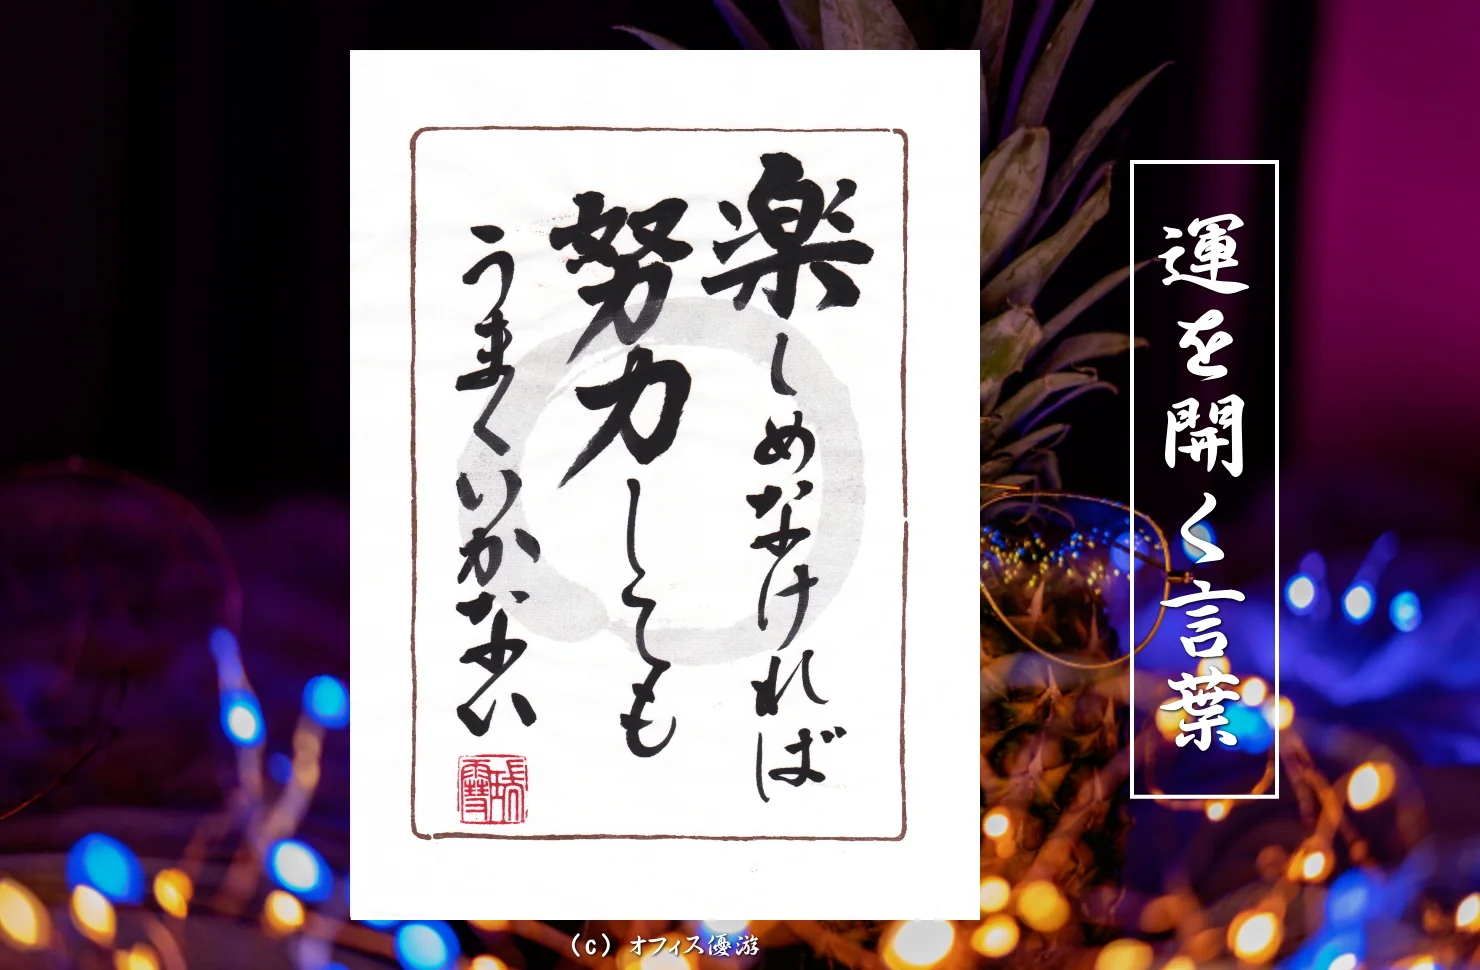 運を開く言葉
楽しめなければ
努力しても
うまくいかない
(c) オフィス優游